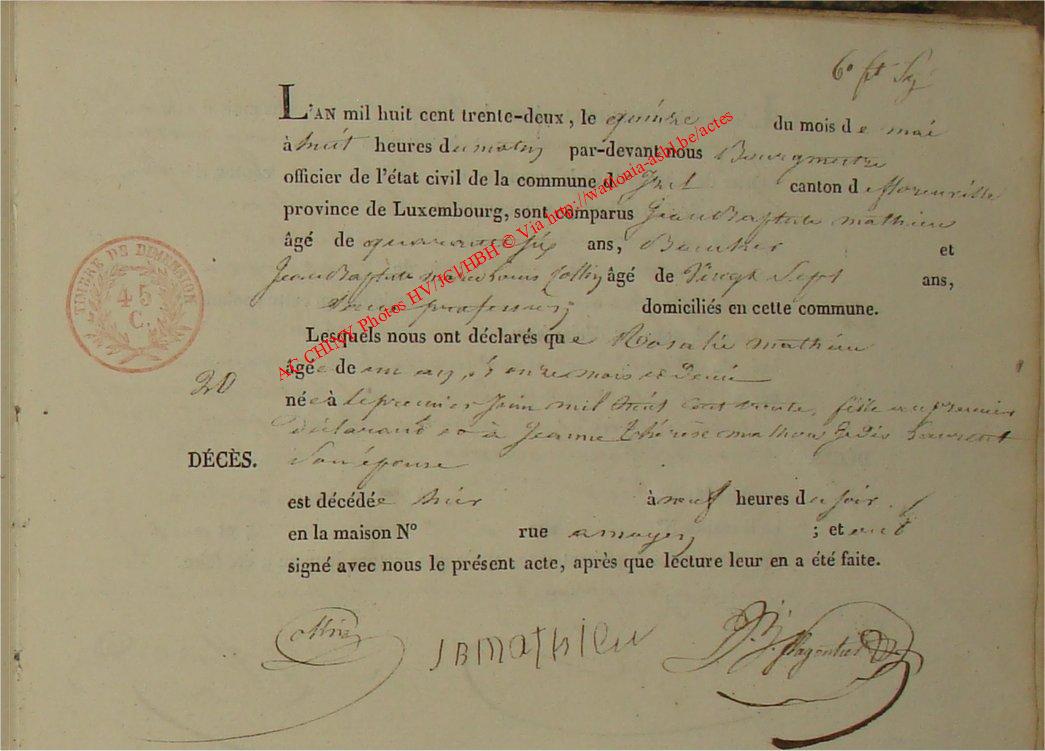 L'AN mil huit cent trente-deux, le quinze du mois de mai
à huit heures du matin par-devant nous Bourgmestre
officier de l'état civil de la commune de canton de florenville
province de Luxembourg, sont comparus Jean Baptiste mathieu
âgé de quarante six ans, et
Jean Baptiste âgé de Vingt Sept ans,
professeur domiciliés en cette commune.
Lesquels nous ont déclarés que Rosalie mathieu
âgée de un an, onze mois et Demi
20
née à le premier Juin mil huit cent trente, fille au premier
déclarant et à Jeanne thérèse
DÉCÈS.
Son épouse
est décédée hier à neuf heures du soir
en la maison N° rue a moyen ; et ont
signé avec nous le présent acte, après que lecture leur en a été faite.
JBmathieu
TIMBRE DE DIMENSION
45
C.
AC CHINY Photos HV/JCl/HBH © Via http://wallonia-asbl.be/actes